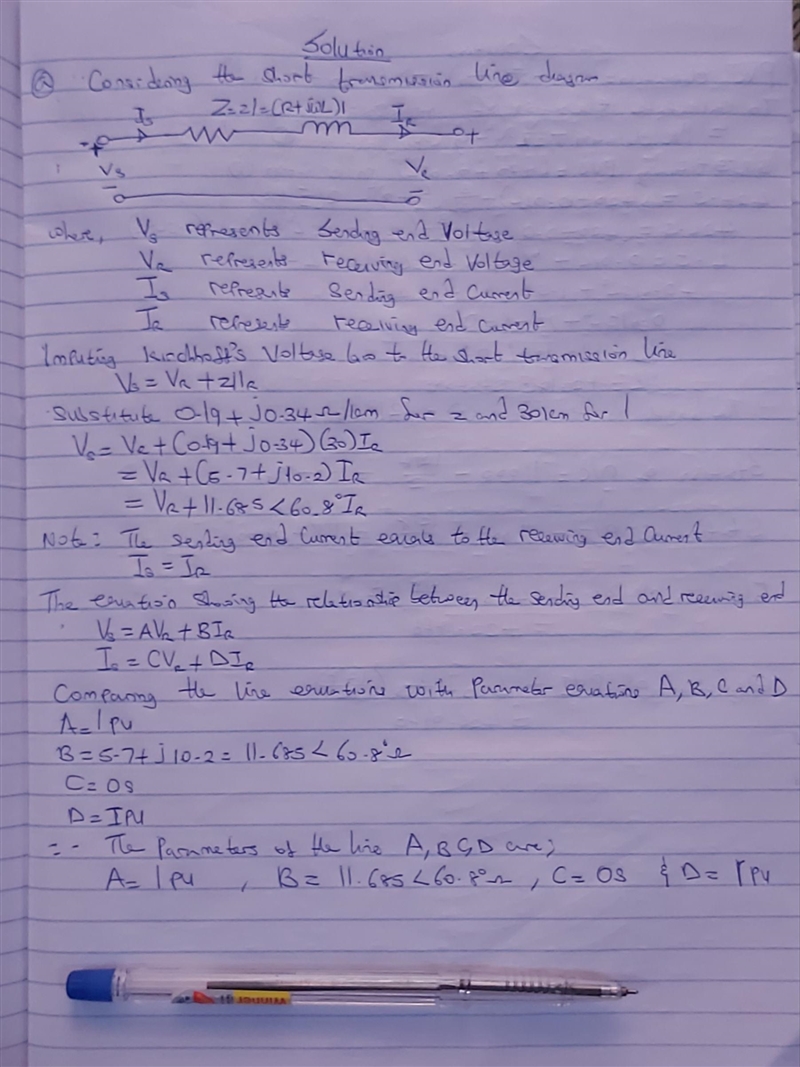 Solution
(a) Considering the short transmission line diagram
Is Z=zl=(R+jωL)l IR
+ +
Vs VR
- -
where, Vs represents Sending end Voltage
VR represents receiving end Voltage
Is represents Sending end Current
IR represents receiving end Current
Imputing Kirchhoff's Voltage law to the short transmission line
Vs = VR + zlIR
Substitute 0.19 + j0.34 Ω/km for z and 30km for l
Vs = VR + (0.19 + j0.34)(30)IR
= VR + (5.7 + j10.2) IR
= VR + 11.685 < 60.8° IR
Note: The sending end Current equals to the receiving end Current
Is = IR
The equation showing the relationship between the sending end and receiving end
Vs = AVR + BIR
Is = CVR + DIR
Comparing the line equations with Parameter equations A, B, C and D
A = 1 pu
B = 5.7 + j10.2 = 11.685 < 60.8° Ω
C = 0S
D = 1pu
∴ The Parameters of the line A, B C, D are;
A = 1 pu , B = 11.685 < 60.8° Ω , C = 0S & D = 1 pu
WINNER